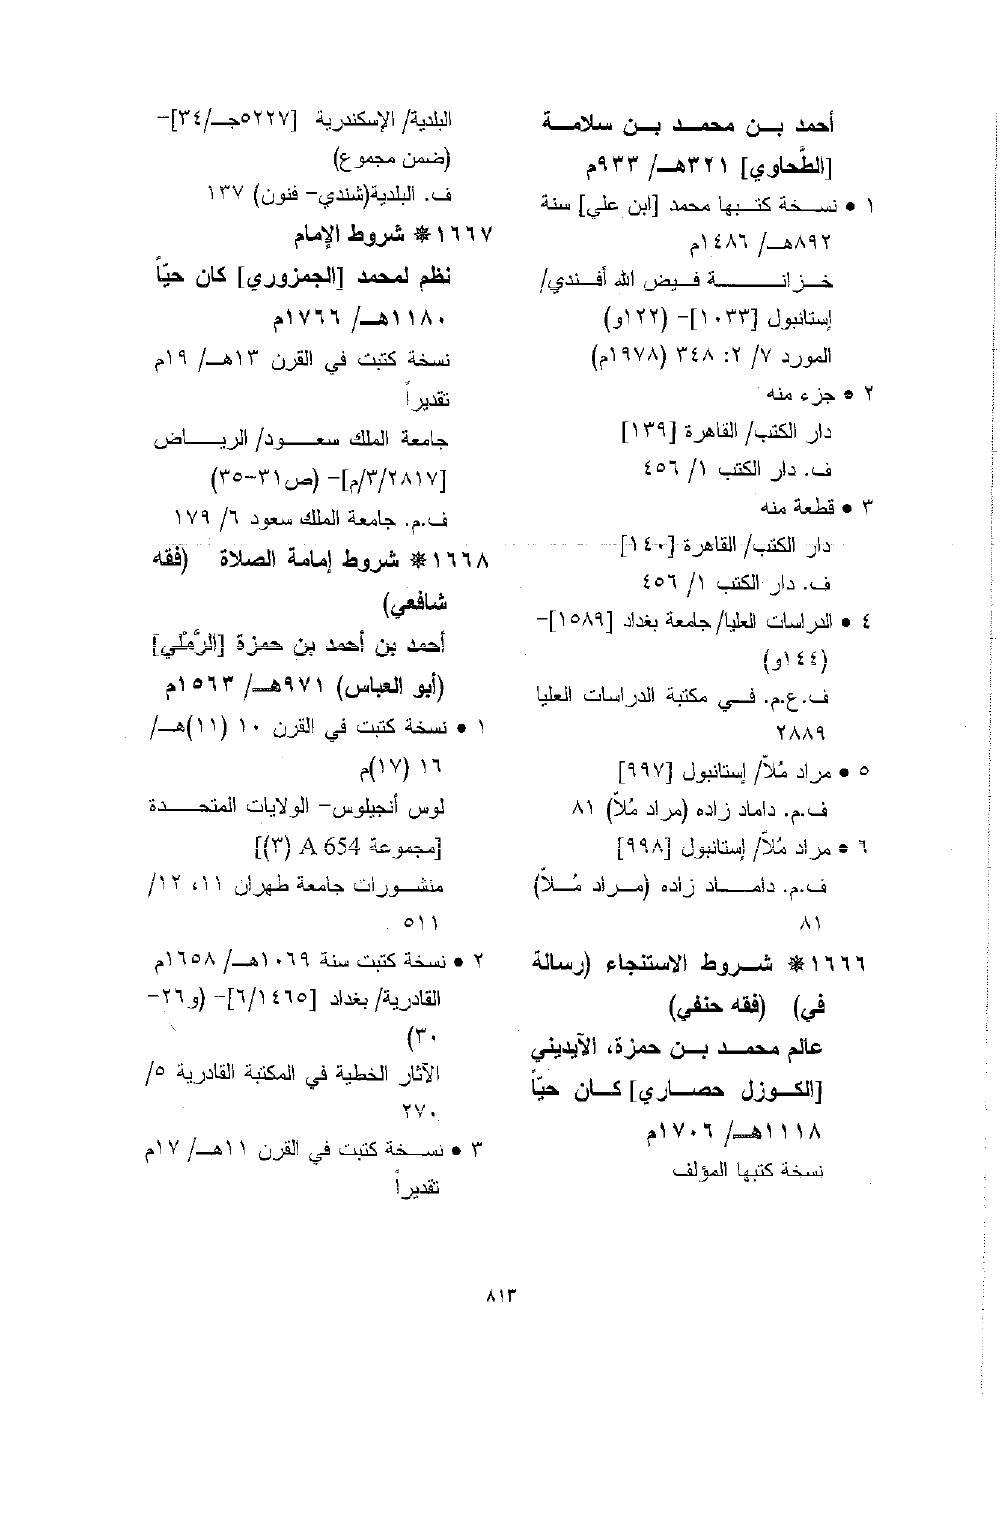 أحمد بن محمد بن سلامة
[الطَّحاوي] ٣٢١هـ/ ٩٣٣م
١ • نسخة كتبها محمد [ابن علي] سنة
٨٩٢هـ/ ١٤٨٦م
خزانة فيض الله أفندي/
إستانبول [١٠٣٣]- (١٢٢و)
المورد ٧/ ٢: ٣٤٨ (١٩٧٨م)
٢ • جزء منه
دار الكتب/ القاهرة [١٣٩]
ف. دار الكتب ١/ ٤٥٦
٣ • قطعة منه
دار الكتب/ القاهرة [١٤٠]
ف. دار الكتب ١/ ٤٥٦
٤ • الدراسات العليا/ جامعة بغداد [١٥٨٩]-
(١٤٤و)
ف.ع.م. في مكتبة الدراسات العليا
٢٨٨٩
٥ • مراد مُلاّ/ إستانبول [٩٩٧]
ف.م. داماد زاده (مراد مُلاّ) ٨١
٦ • مراد مُلاّ/ إستانبول [٩٩٨]
ف.م. داماد زاده (مراد مُلاّ)
٨١
١٦٦٦* شروط الاستنجاء (رسالة
في) (فقه حنفي)
عالم محمد بن حمزة، الآيديني
[الكوزل حصاري] كان حيّاً
١١١٨هـ/ ١٧٠٦م
نسخة كتبها المؤلف
البلدية/ الإسكندرية [٥٢٢٧جـ/٣٤]-
(ضمن مجموع)
ف. البلدية(شندي- فنون) ١٣٧
١٦٦٧* شروط الإمام
نظم لمحمد [الجمزوري] كان حيّاً
١١٨٠هـ/ ١٧٦٦م
نسخة كتبت في القرن ١٣هـ/ ١٩م
تقديراً
جامعة الملك سعود/ الرياض
[٣/٢٨١٧/م]- (ص٣١-٣٥)
ف.م. جامعة الملك سعود ٦/ ١٧٩
١٦٦٨* شروط إمامة الصلاة (فقه
شافعي)
أحمد بن أحمد بن حمزة [الرَّمْلي]
(أبو العباس) ٩٧١هـ/ ١٥٦٣م
١ • نسخة كتبت في القرن ١٠ (١١)هـ/
١٦ (١٧)م
لوس أنجيلوس- الولايات المتحدة
[مجموعة A 654 (٣)]
منشورات جامعة طهران ١١، ١٢/
٥١١
٢ • نسخة كتبت سنة ١٠٦٩هـ/ ١٦٥٨م
القادرية/ بغداد [٦/١٤٦٥]- (و٢٦-
٣٠)
الآثار الخطية في المكتبة القادرية ٥/
٢٧٠
٣ • نسخة كتبت في القرن ١١هـ/ ١٧م
تقديراً
٨١٣